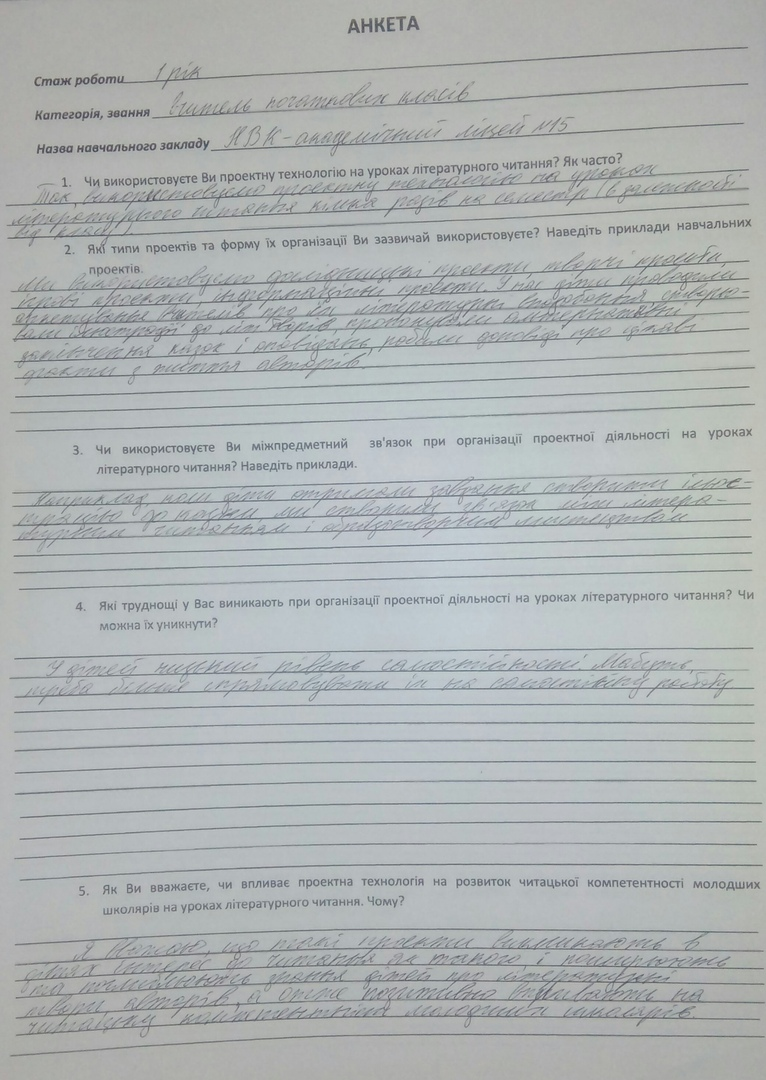 АНКЕТА
Стаж роботи 1 рік
Категорія, звання вчитель початкових класів
Назва навчального закладу НВК - академічний ліцей №15
1. Чи використовуєте Ви проектну технологію на уроках літературного читання? Як часто?
Так, використовуємо проектну технологію на уроках
літературного читання кілька разів на семестр (в залежності
від класу).
2. Які типи проектів та форму їх організації Ви зазвичай використовуєте? Наведіть приклади навчальних
проектів.
Ми використовуємо дослідницькі проекти, творчі проекти,
ігрові проекти, інформаційні проекти. У нас діти проводили
анкетування вчителів про їх літературні вподобання, створю-
вали ілюстрації до літ. творів, пропонували альтернативні
закінчення казок і оповідань, робили доповіді про цікаві
факти з життя авторів.
3. Чи використовуєте Ви міжпредметний зв'язок при організації проектної діяльності на уроках
літературного читання? Наведіть приклади.
Наприклад, коли діти отримали завдання створити ілюс-
трацію до казки ми створили зв'язок між літера-
турним читанням і образотворчим мистецтвом
4. Які труднощі у Вас виникають при організації проектної діяльності на уроках літературного читання? Чи
можна їх уникнути?
У дітей низький рівень самостійності. Мабуть,
треба більше спрямовувати їх на самостійну роботу
5. Як Ви вважаєте, чи впливає проектна технологія на розвиток читацької компетентності молодших
школярів на уроках літературного читання. Чому?
Я вважаю, що такі проекти викликають в
дітях інтерес до читання як такого і поширюють
та поглиблюють знання дітей про літературні
твори, авторів, а отже позитивно впливають на
читацьку компетентність молодших школярів.